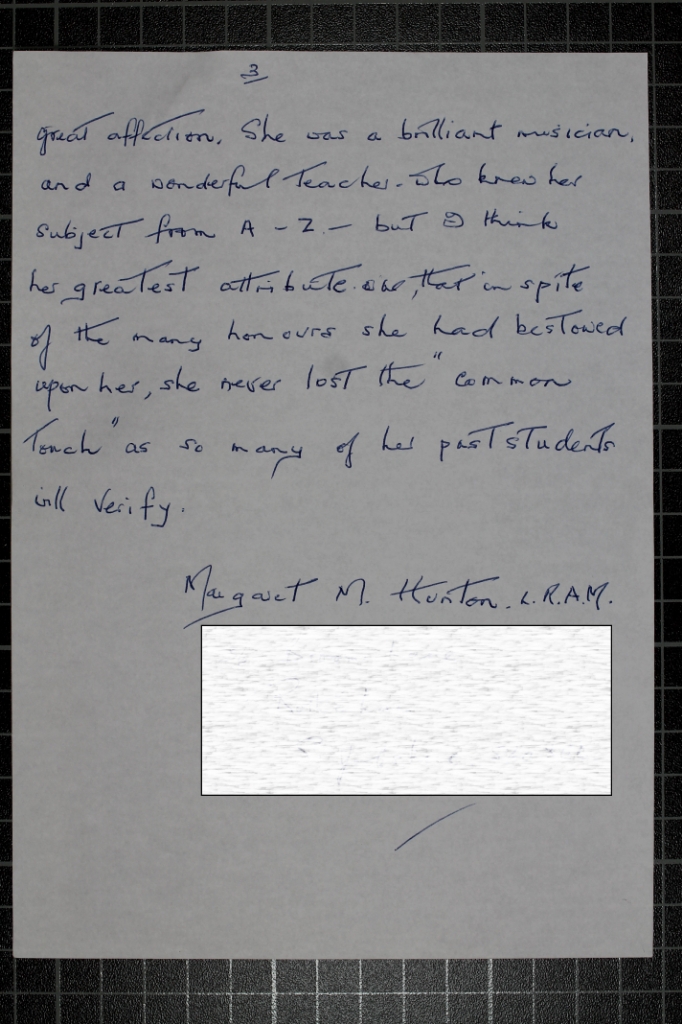 3
great affection. She was a brilliant musician,
and a wonderful teacher. Who knew her
subject from A - Z. - but I think
her greatest attribute was, that in spite
of the many honours she had bestowed
upon her, she never lost the "common
touch" as so many of her past students
will verify.
Margaret M. Hunton. L.R.A.M.